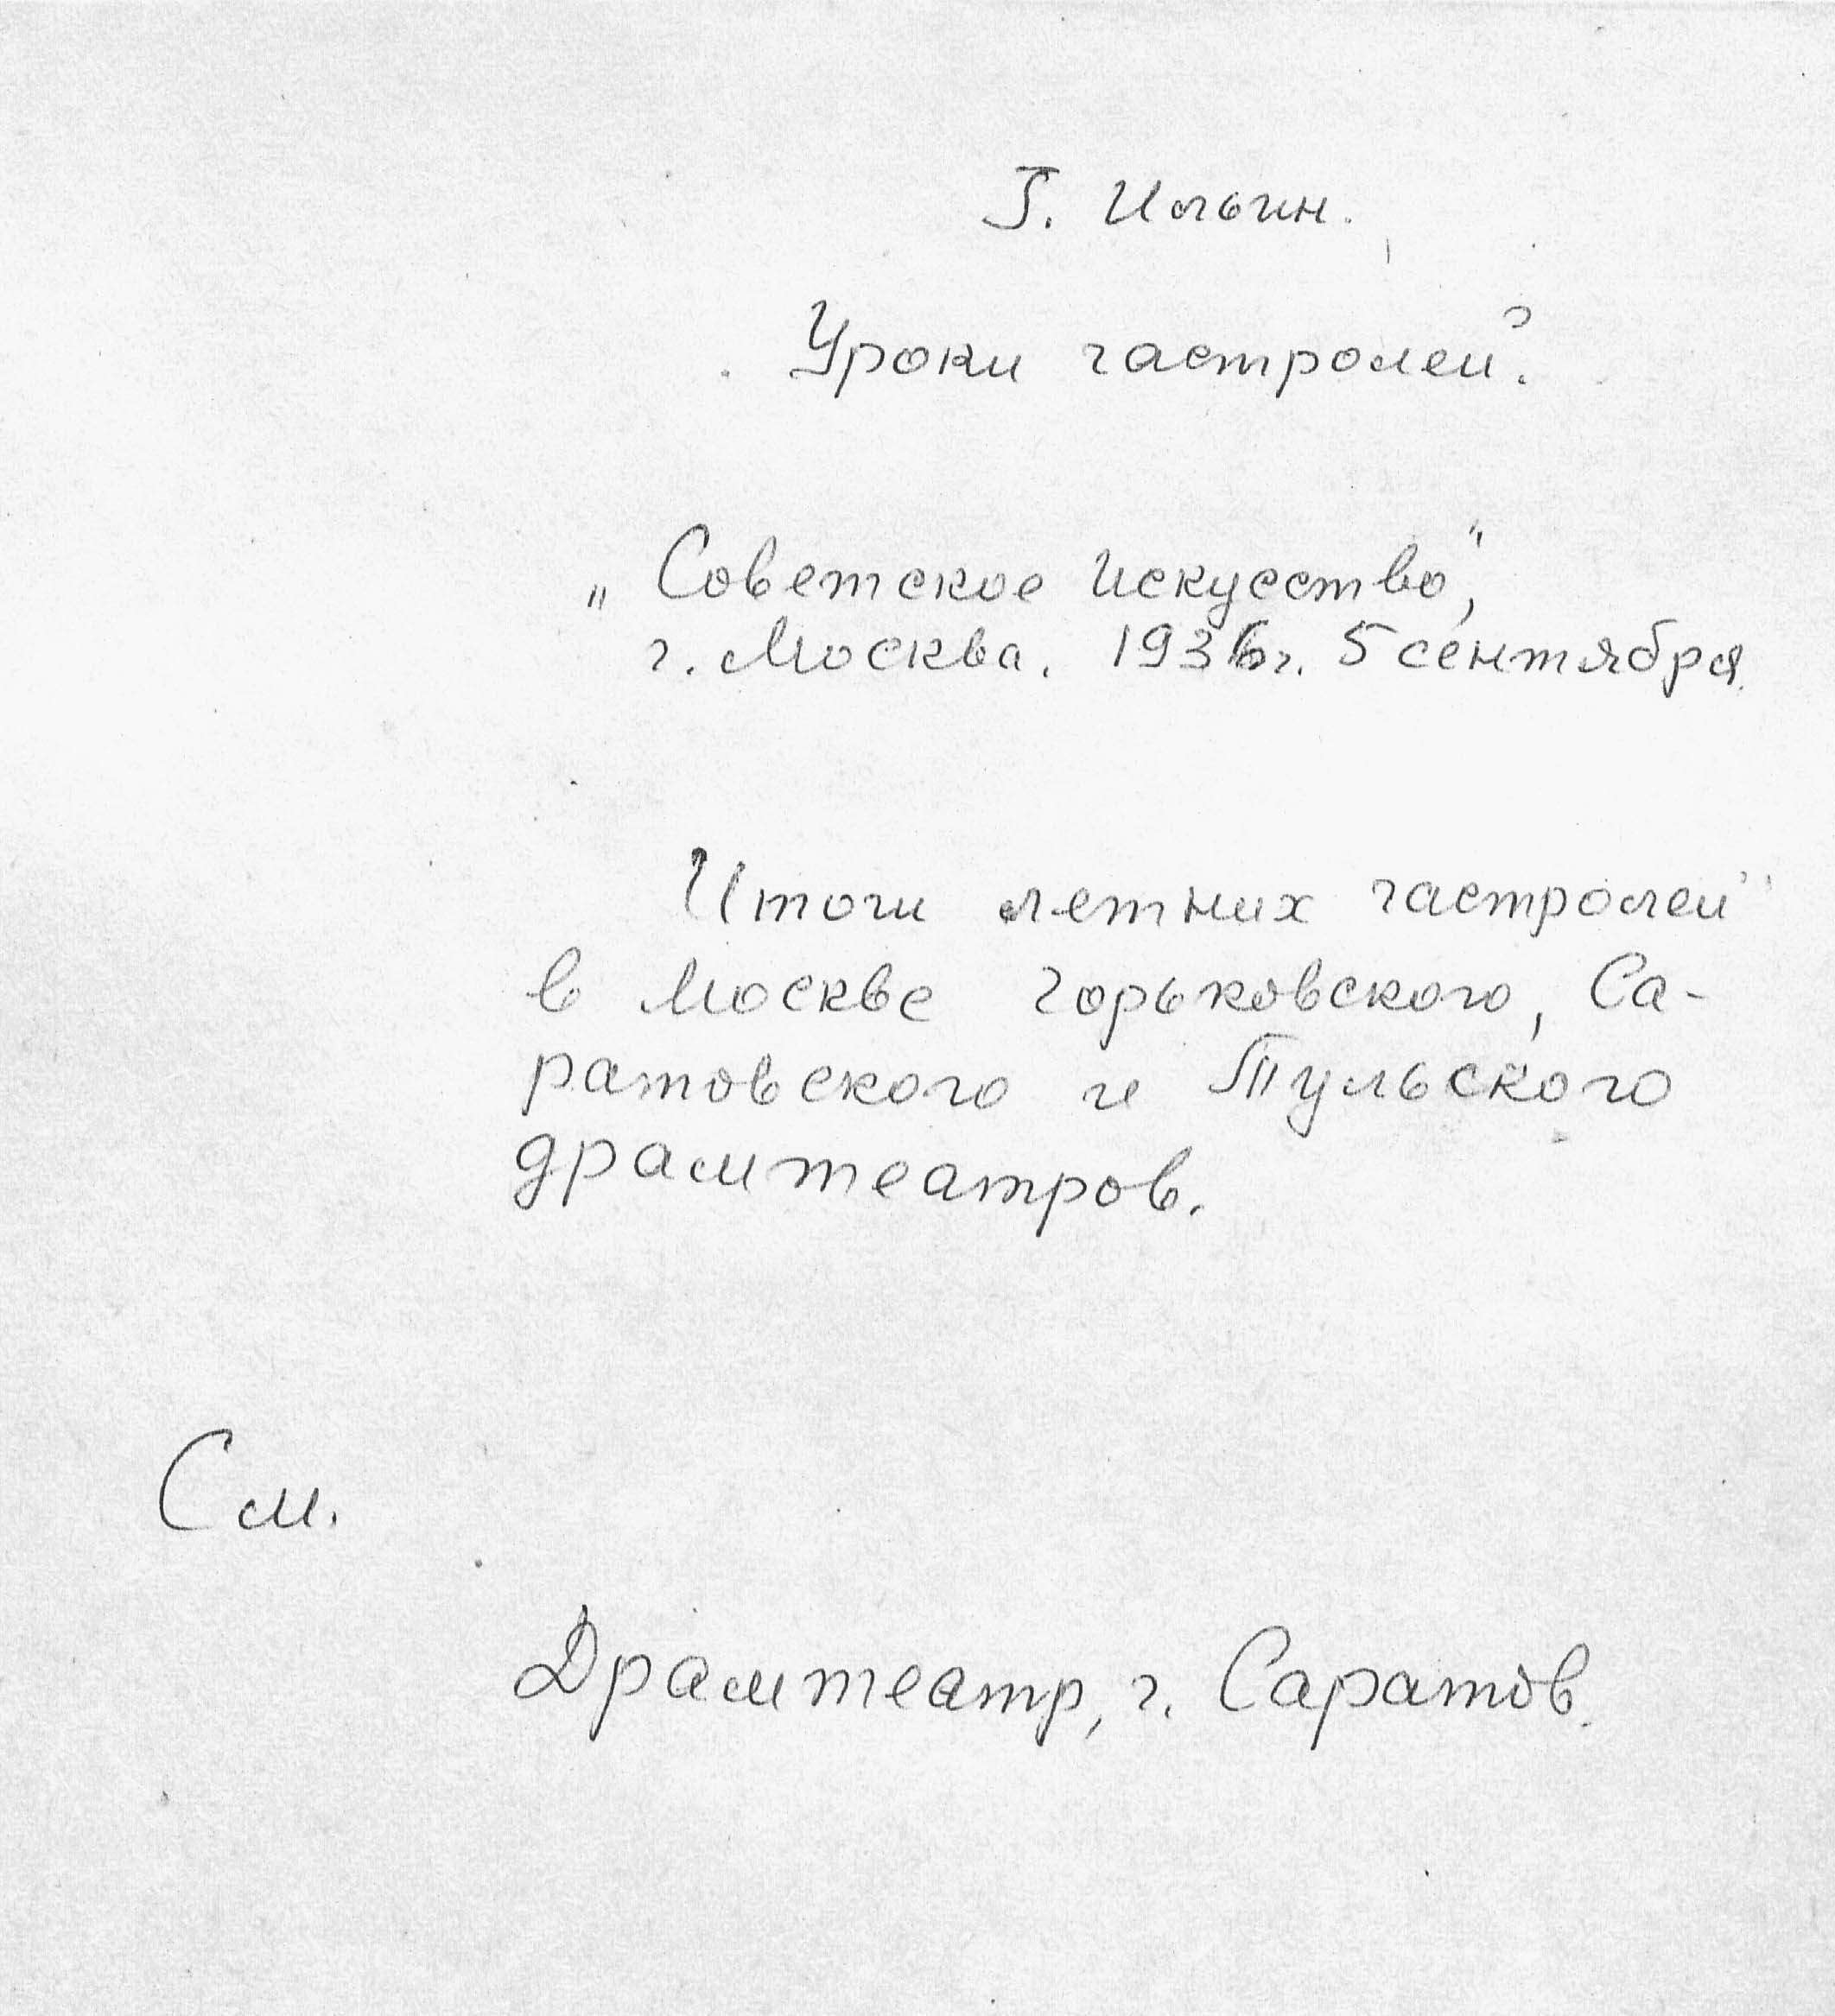 Г. Ильин.
Уроки гастролей.
„Советское искусство",
г. Москва. 1936 г. 5 сентября.
Итоги летних гастролей
в Москве горьковского, Са-
ратовского и Тульского
драмтеатров.
См.
Драмтеатр, г. Саратов.